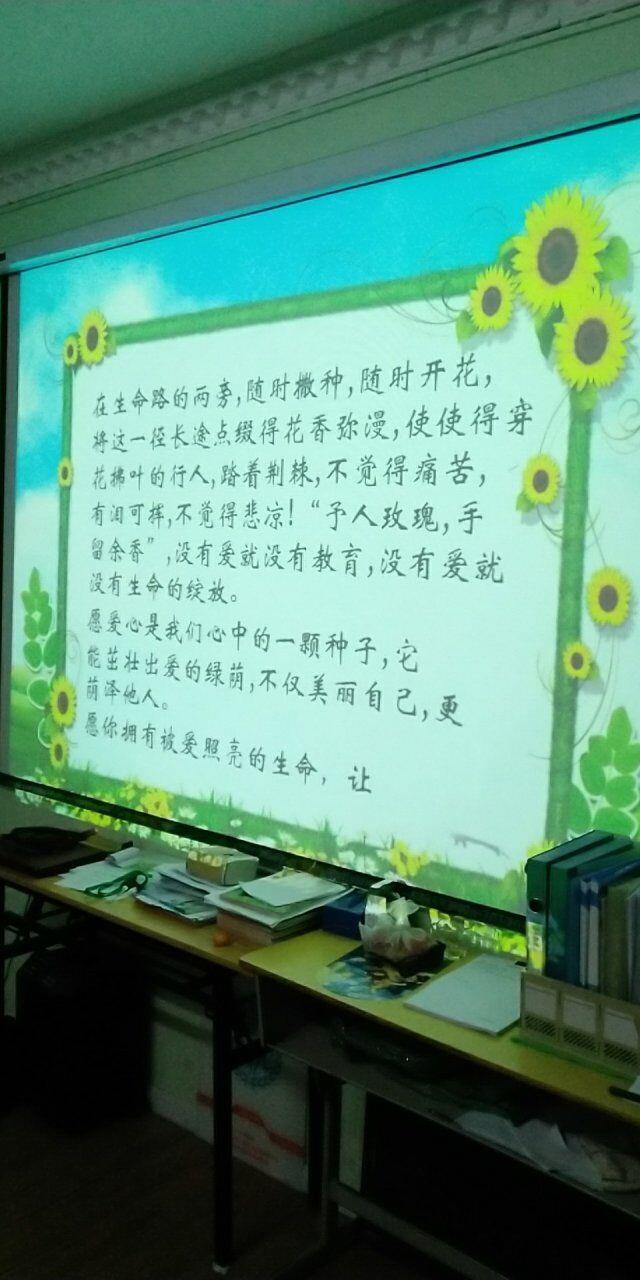 在生命路的两旁,随时撒种,随时开花,
将这一径长途点缀得花香弥漫,使使得穿
花拂叶的行人,踏着荆棘,不觉得痛苦,
有泪可挥,不觉得悲凉!“予人玫瑰,手
留余香”,没有爱就没有教育,没有爱就
没有生命的绽放。
愿爱心是我们心中的一颗种子,它
能茁壮出爱的绿荫,不仅美丽自己,更
荫泽他人。
愿你拥有被爱照亮的生命，让